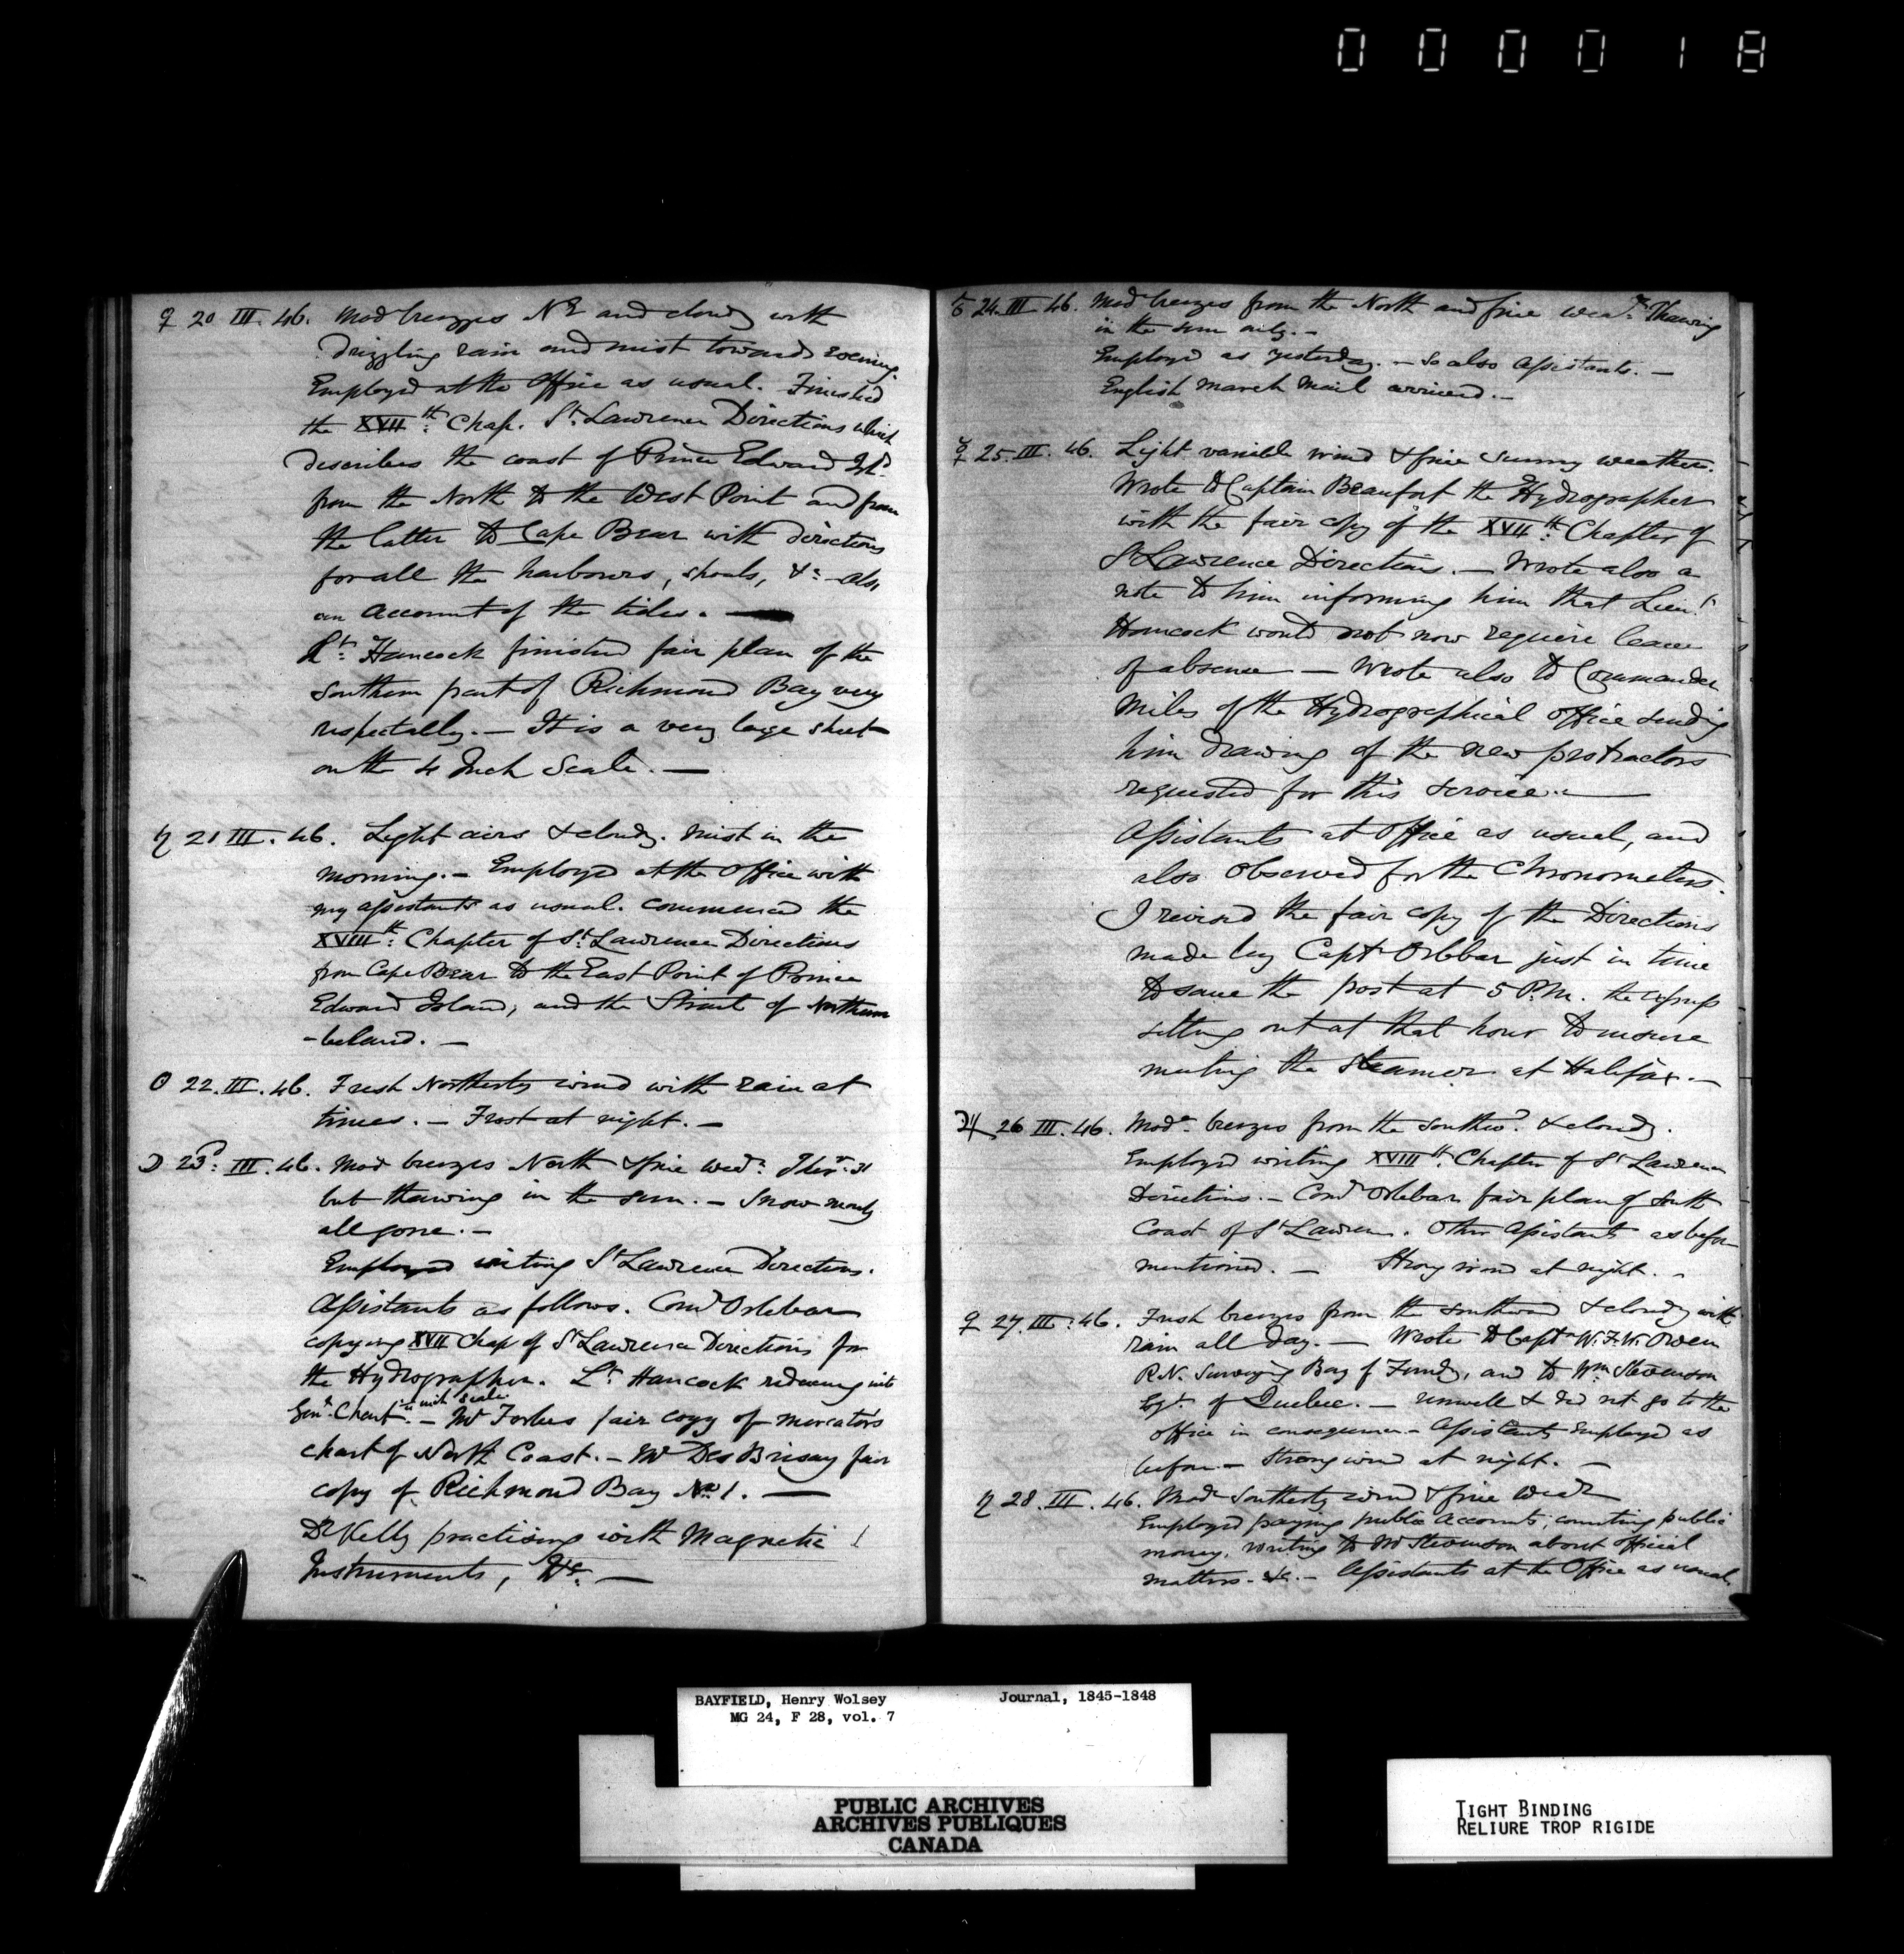 000018
♀ 20 III. 46. Mod breezes NE and cloudy with
drizzling rain and mist towards evening.
Employed at the Office as usual. Finished
the XVII.th Chap. St. Lawrence Directions which
describes the coast of Prince Edward Isld.
from the North to the West Point and from
the latter to Cape Bear with directions
for all the harbours, shoals, &c. also
an account of the tides. —
Lt. Hancock finished fair plan of the
Southern part of Richmond Bay very
— It is a very large sheet
on the 4 Inch Scale. —
♄ 21 III. 46. Light airs & cloudy. Mist in the
morning. — Employed at the Office with
my assistants as usual. Commenced the
XVIII.th Chapter of St. Lawrence Directions
from Cape Bear to the East Point of Prince
Edward Island, and the Strait of Northum
-berland. —
☉ 22. III. 46. Fresh Northerly wind with rain at
times. — Frost at night. —
☽ 23d. III. 46. Mod breezes North & fine wear. Ther. 31
but thawing in the sun. — Snow nearly
all gone. —
Employed writing St Lawrence Directions.
Assistants as follows. Comr Orlebar
copying XVII Chap of St Lawrence Directions for
the Hydrographer. Lt. Hancock reducing into
Genl. Chart. — Mr Forbes fair copy of mercators
chart of North Coast. — Mr Des Brisay fair
copy of Richmond Bay No. 1. —
Dr Kelly practising with Magnetic
Instruments, &c. —
♂ 24. III 46. Mod breezes from the North and fine wear. Thawing
in the sun only. —
Employed as yesterday. — So also Assistants. —
English March Mail arrived. —
☿ 25. III. 46. Light variable wind & fine sunny weather.
Wrote to Captain Beaufort the Hydrographer
with the fair copy of the XVII.th Chapter of
St Lawrence Directions. — Wrote also a
note to him informing him that Lieut.
Hancock would not now require leave
of absence — Wrote also to Commander
Miles of the Hydrographical Office sending
him drawing of the new protractors
requested for this service. —
Assistants at Office as usual, and
also observed for the Chronometers.
I revised the fair copy of the Directions
made by Capt Orlebar just in time
to save the post at 5 P.M. the express
setting out at that hour to insure
meeting the Steamer at Halifax. —
♃ 26 III. 46. Mode. breezes from the Southwd. & cloudy.
Employed writing XVIII.th Chapter of St Lawrence
Directions. — Comr Orlebar fair plan of South
Coast of St Lawrence. Other Assistants as before
mentioned. — Strong wind at night. —
♀ 27. III. 46. Fresh breezes from the Southward & cloudy with
rain all day. — Wrote to Capt W. F. W. Owen
R.N. Surveying Bay of Fundy, and to Wm Stevenson
Esqr. of Quebec. — Unwell & did not go to the
office in consequence — Assistants employed as
before — Strong wind at night. —
♄ 28. III. 46. Mode Southerly wind & fine wear
Employed paying public accounts, counting public
money, writing to Mr Stevenson about official
matters. &c. — Assistants at the Office as usual.
BAYFIELD, Henry Wolsey Journal, 1845-1848
MG 24, F 28, vol. 7
PUBLIC ARCHIVES
ARCHIVES PUBLIQUES
CANADA
TIGHT BINDING
RELIURE TROP RIGIDE